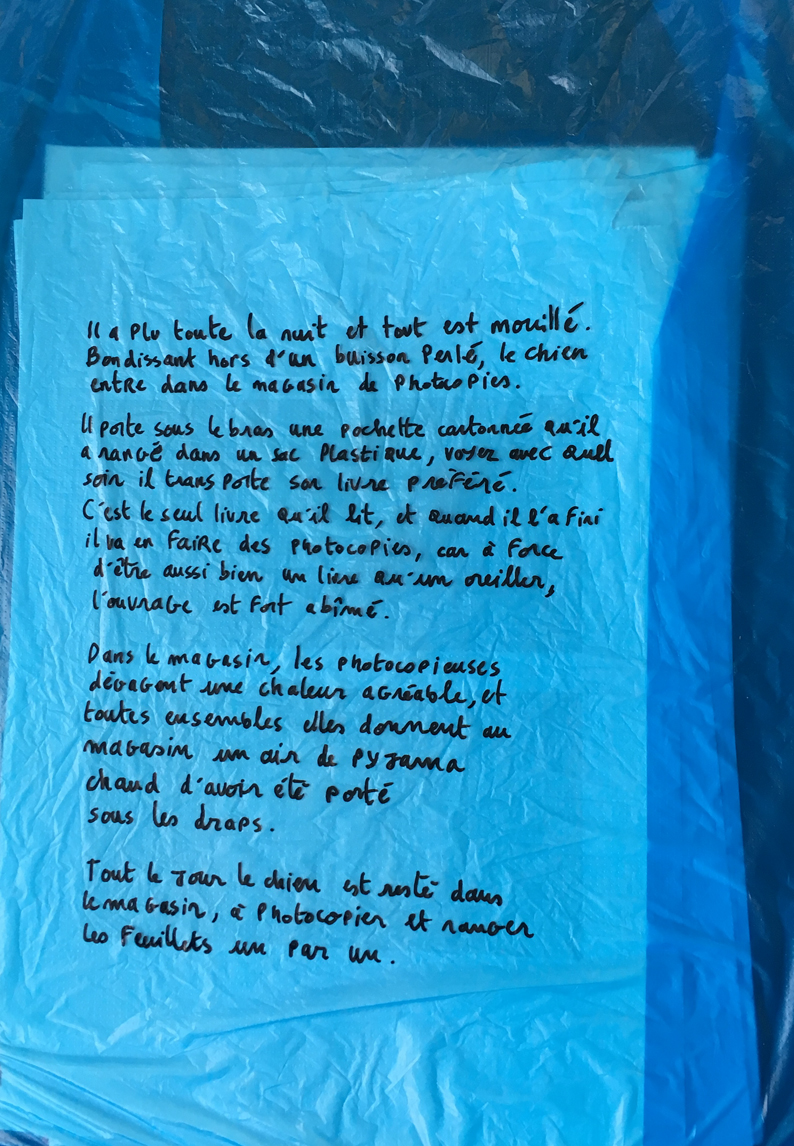 Il a plu toute la nuit et tout est mouillé.
Bondissant hors d'un buisson Perlé, le chien
entre dans le magasin de Photocopies.
Il porte sous le bras une pochette cartonnée qu'il
a rangé dans un sac Plastique, voyez avec quel
soin il transporte son livre préféré.
C'est le seul livre qu'il lit, et quand il l'a fini
il va en faire des photocopies, car à force
d'être aussi bien un livre qu'un oreiller,
l'ouvrage est fort abîmé.
Dans le magasin, les photocopieuses
dégagent une chaleur agréable, et
toutes ensembles elles donnent au
magasin un air de pyjama
chaud d'avoir été porté
sous les draps.
Tout le jour le chien est resté dans
le magasin, à photocopier et ranger
les feuillets un par un.